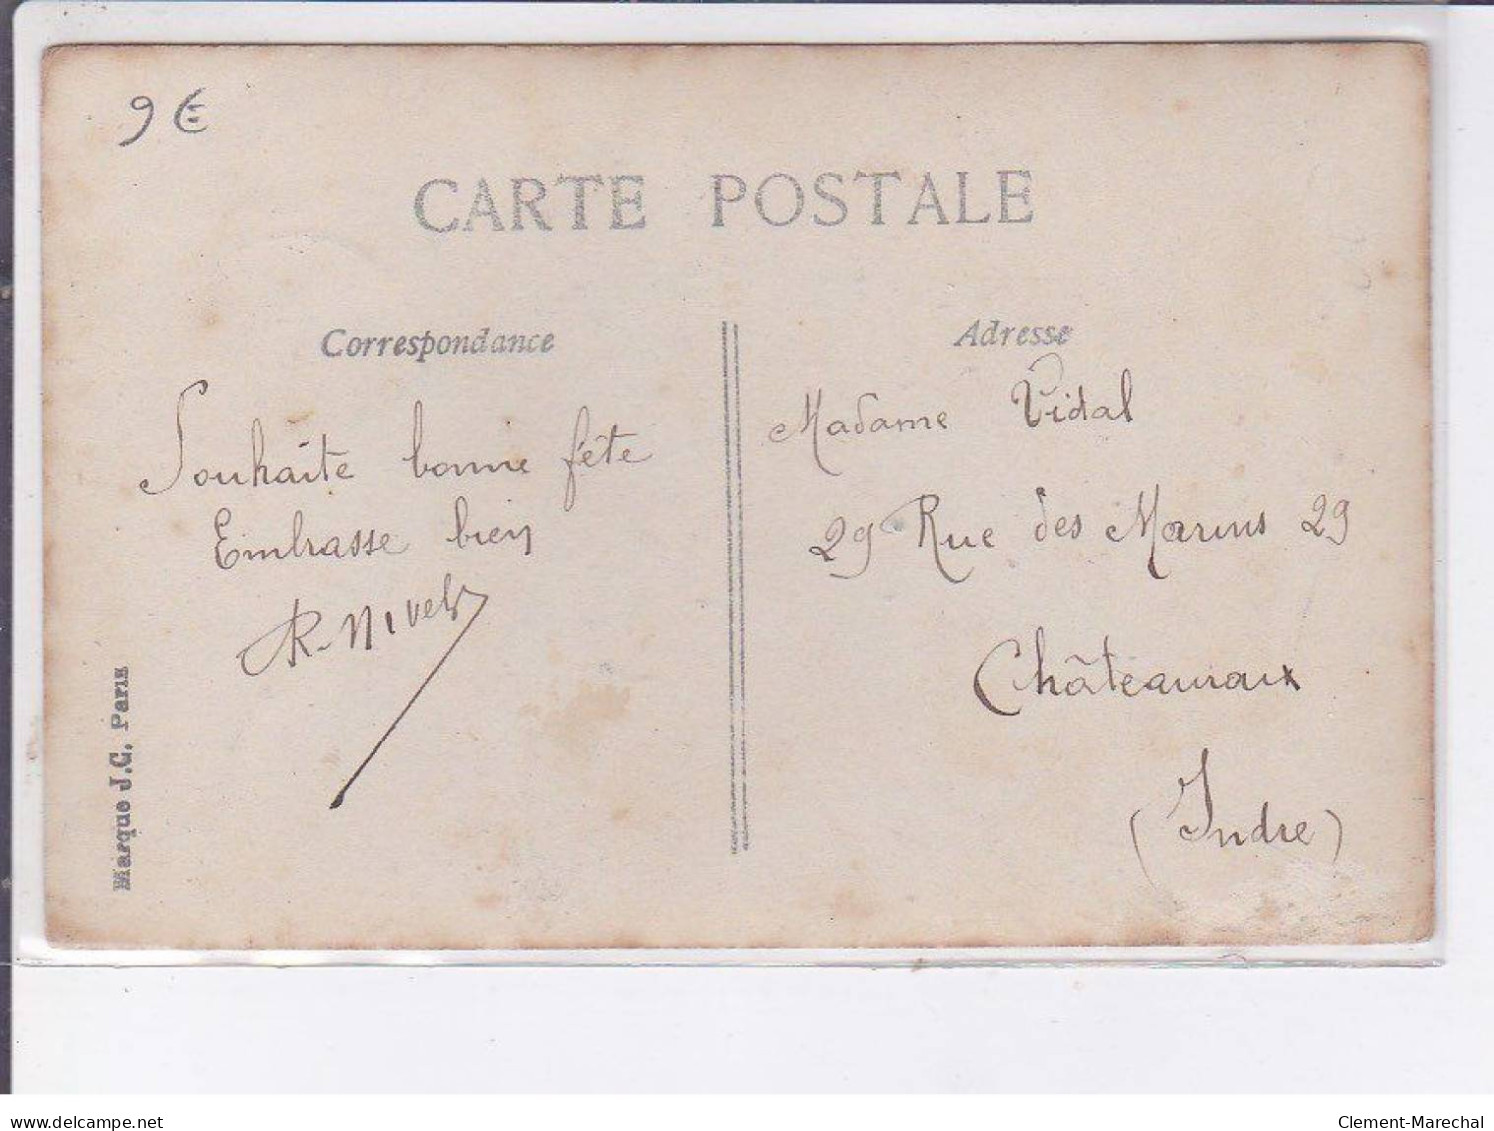 9€
CARTE POSTALE
Correspondance
Souhaite bonne fête
Embrasse bien
R. Nivet
Marque J.C. Paris
Adresse
Madame Vidal
29 Rue des Marins 29
Châteauroux
(Indre)
delcampe.net
Clement-Marechal